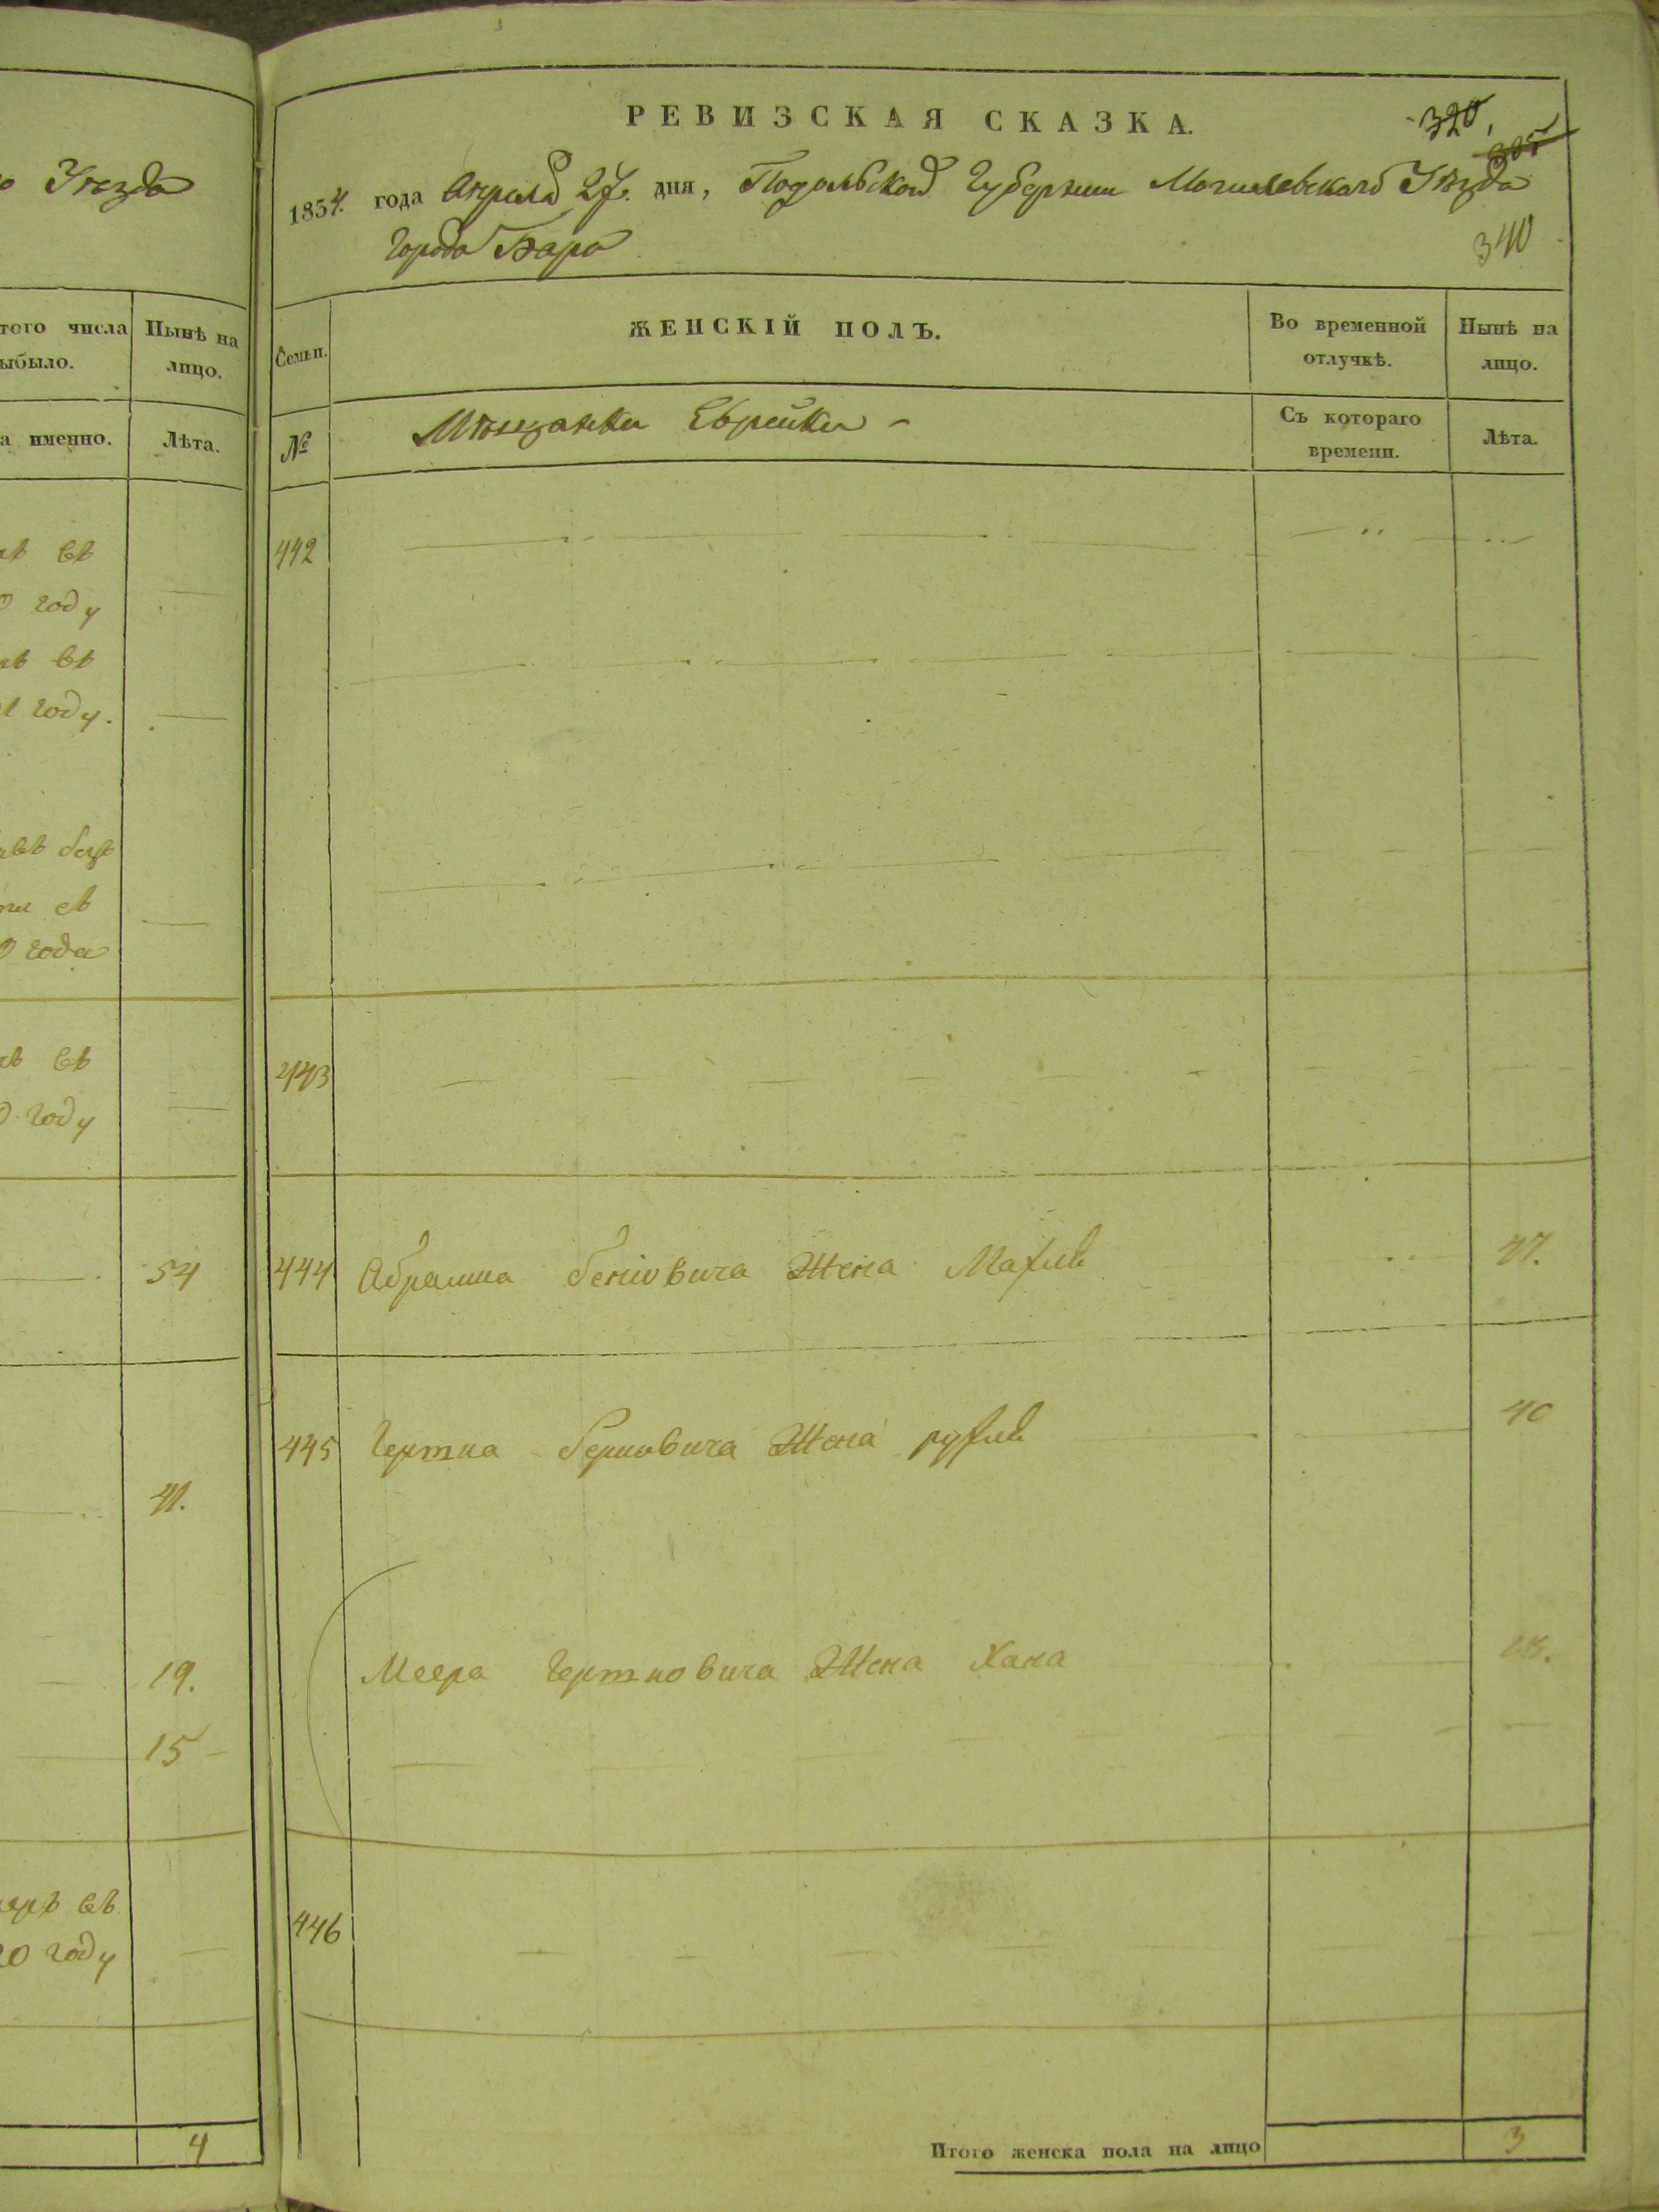 Уѣзда
того числа
Нынѣ на
ыбыло.
лицо.
а именно.
Лѣта.
въ
году
въ
году.
года
въ
году
54
41.
19.
15
въ
20 году
4
РЕВИЗСКАЯ СКАЗКА.
320,
305
1834. года Апреля 27. дня, Подольской Губернии Могилевского Уѣзда
340
Города Бара
Семьи.
ЖЕНСКІЙ ПОЛЪ.
Во временной
отлучкѣ.
Нынѣ на
лицо.
№
Мѣщанки Еврейки
Съ котораго
времени.
Лѣта.
442
443
444 Абрамка Бениовича Жена Махля 47.
445 Гершка Берковича Жена рухля 40
Меера Гершковича Жена Хана 18.
446
Итого женска пола на лицо 3